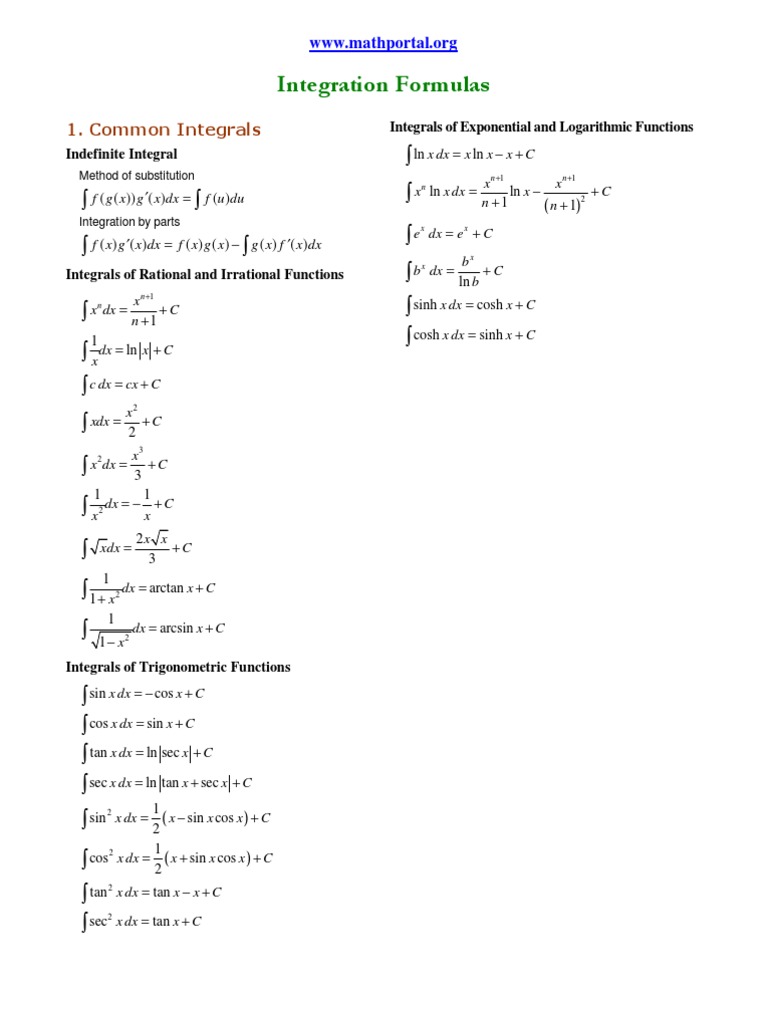 www.mathportal.org
Integration Formulas
1. Common Integrals
Indefinite Integral
Method of substitution
∫ f(g(x))g′(x)dx = ∫ f(u)du
Integration by parts
∫ f(x)g′(x)dx = f(x)g(x) − ∫ g(x)f′(x)dx
Integrals of Rational and Irrational Functions
∫ xⁿ dx = xⁿ⁺¹/(n+1) + C
∫ 1/x dx = ln|x| + C
∫ c dx = cx + C
∫ xdx = x²/2 + C
∫ x² dx = x³/3 + C
∫ 1/x² dx = −1/x + C
∫ √x dx = 2x√x/3 + C
∫ 1/(1+x²) dx = arctan x + C
∫ 1/√(1−x²) dx = arcsin x + C
Integrals of Trigonometric Functions
∫ sin x dx = −cos x + C
∫ cos x dx = sin x + C
∫ tan x dx = ln|sec x| + C
∫ sec x dx = ln|tan x + sec x| + C
∫ sin² x dx = 1/2 (x − sin x cos x) + C
∫ cos² x dx = 1/2 (x + sin x cos x) + C
∫ tan² x dx = tan x − x + C
∫ sec² x dx = tan x + C
Integrals of Exponential and Logarithmic Functions
∫ ln x dx = x ln x − x + C
∫ xⁿ ln x dx = xⁿ⁺¹/(n+1) ln x − xⁿ⁺¹/(n+1)² + C
∫ eˣ dx = eˣ + C
∫ bˣ dx = bˣ/ln b + C
∫ sinh x dx = cosh x + C
∫ cosh x dx = sinh x + C